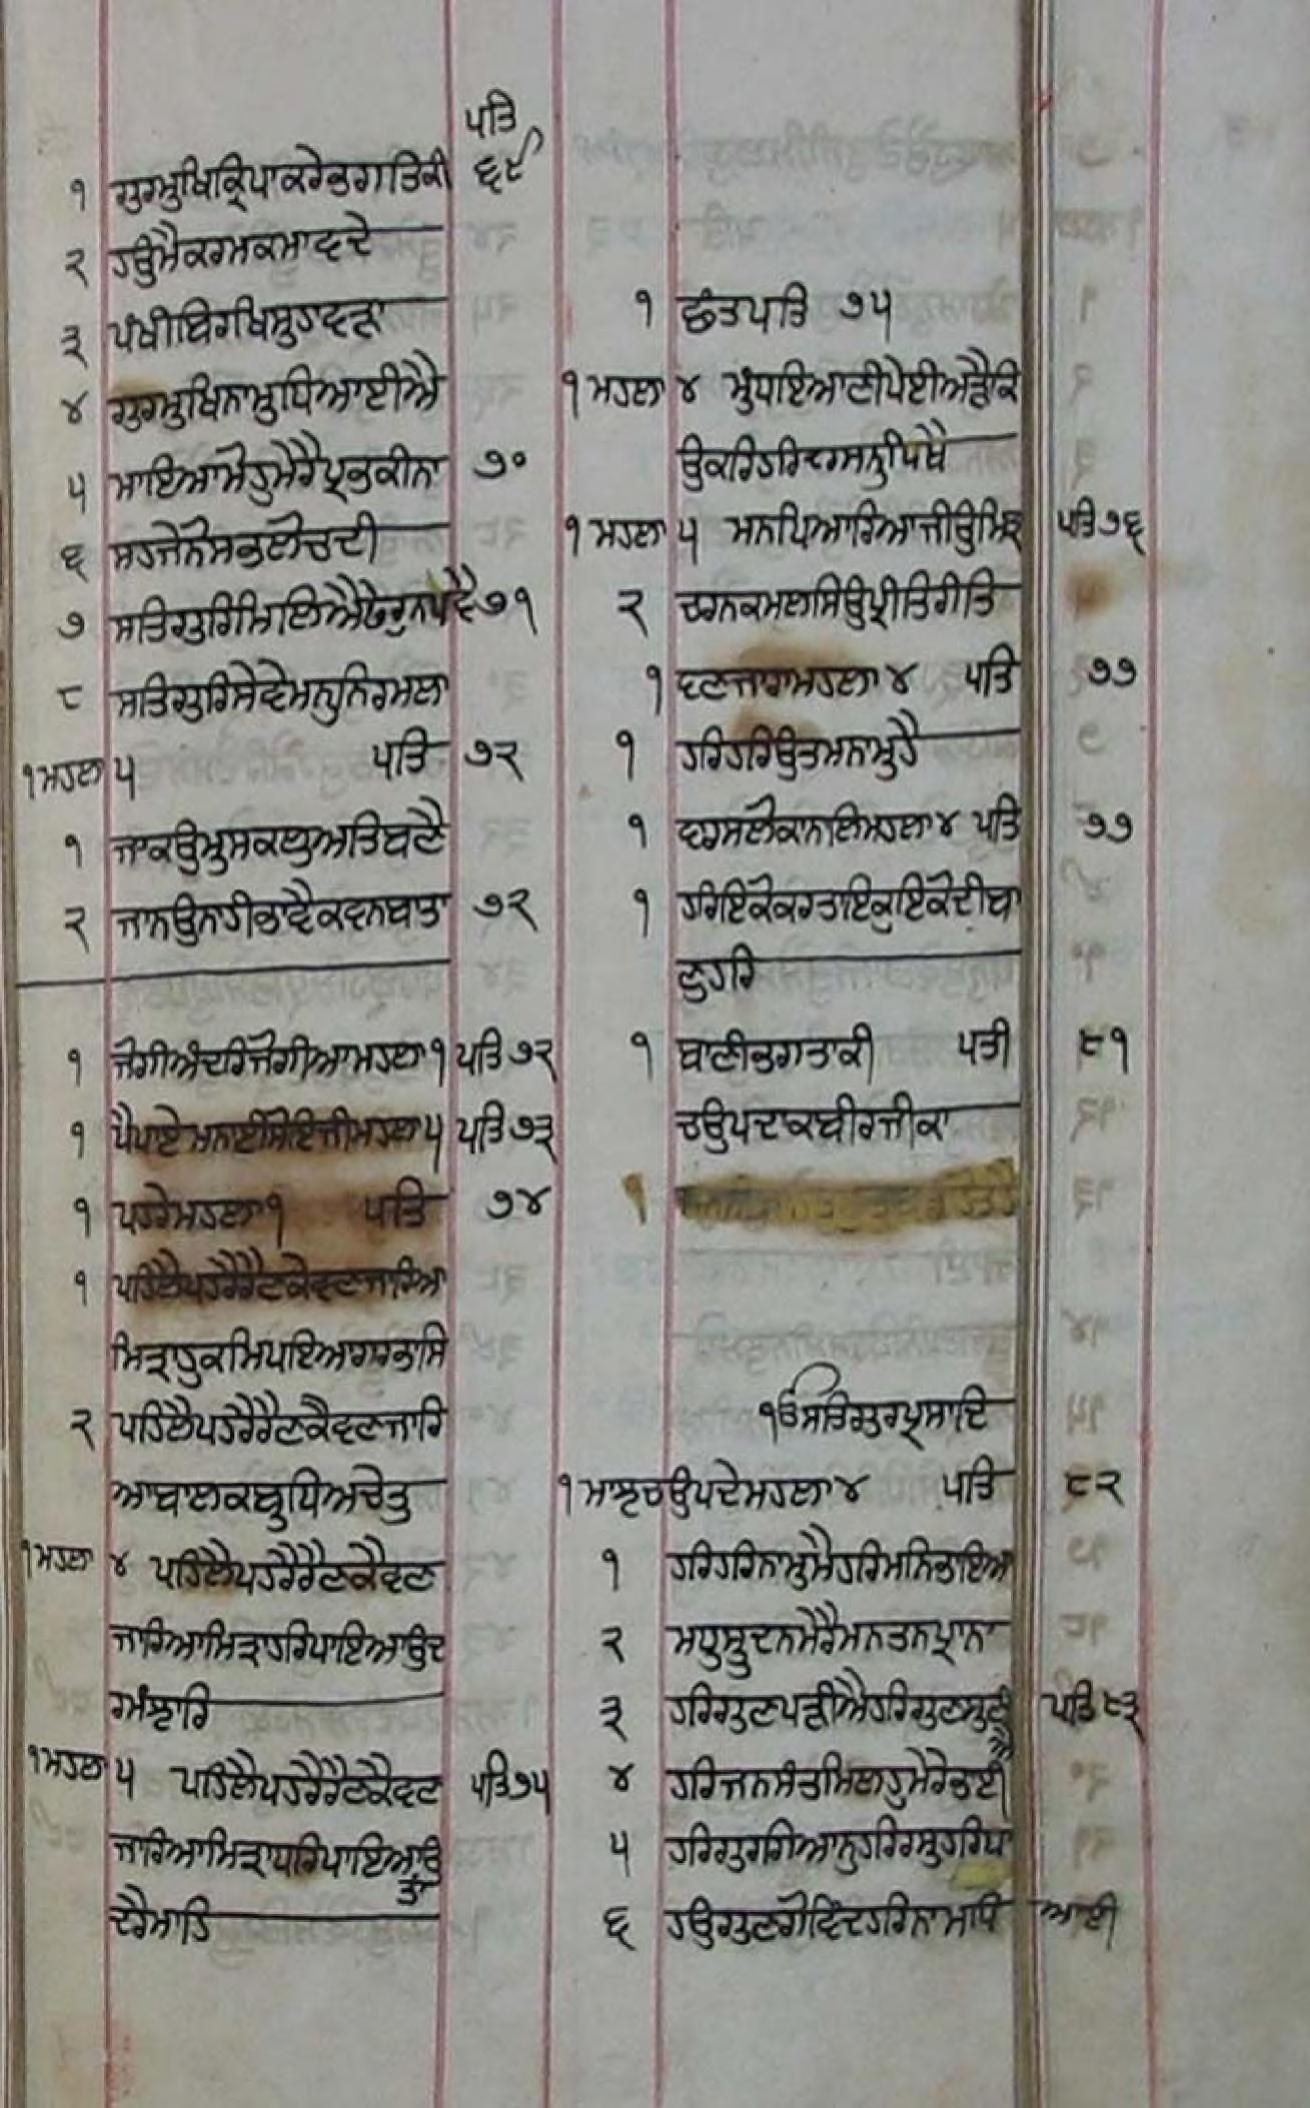 ਪਤਿ
੧ ਗੁਰਮੁਖਿਕ੍ਰਿਪਾਕਰੇਭਗਤਿਕੀ ੬੯
੨ ਹਉਮੈਕਰਮਕਮਾਵਦੇ
੩ ਪੰਖੀਬਿਰਖਿਸੁਹਾਵੜਾ
੪ ਗੁਰਮੁਖਿਨਾਮੁਧਿਆਈਐ
੫ ਮਾਇਆਮੋਹੁਮੇਰੈਪ੍ਰਭਕੀਨਾ ੭੦
੬ ਸਹਜੈਨੋਸਭਲੋਚਦੀ
੭ ਸਤਿਗੁਰਿਮਿਲਿਐਫੇਰੁਨਪਵੈ ੭੧
੮ ਸਤਿਗੁਰਿਸੇਵੇਮਨੁਨਿਰਮਲਾ
੧ਮਹਲਾ ੫ ਪਤਿ ੭੨
੧ ਜਾਕਉਮੁਸਕਲੁਅਤਿਬਣੈ
੨ ਜਾਨਉਨਹੀਭਾਵੈਕਵਨਬਾਤਾ ੭੨
੧ ਜੋਗੀਅੰਦਰਿਜੋਗੀਆਮਹਲਾ੧ ਪਤਿ੭੨
੧ ਪੈਪਾਏਮਨਾਈਸੋਇਜੀਮਹਲਾ੫ ਪਤਿ੭੩
੧ ਪਹਰੇਮਹਲਾ੧ ਪਤਿ ੭੪
੧ ਪਹਿਲੈਪਹਰੈਰੈਣਕੇਵਣਜਾਰਿਆ
ਮਿਤ੍ਰਾਹੁਕਮਿਪਇਆਗਰਭਾਸਿ
੨ ਪਹਿਲੈਪਹਰੈਰੈਣਕੈਵਣਜਾਰਿ
ਆਬਾਲਕਬੁਧਿਅਚੇਤੁ
੧ਮਹਲਾ ੪ ਪਹਿਲੈਪਹਰੈਰੈਣਕੈਵਣ
ਜਾਰਿਆਮਿਤ੍ਰਾਹਰਿਪਾਇਆਉਦ
ਰਮੰਝਾਰਿ
੧ਮਹਲਾ ੫ ਪਹਿਲੈਪਹਰੈਰੈਣਕੈਵਣ ਪਤਿ੭੫
ਜਾਰਿਆਮਿਤ੍ਰਾਧਰਿਪਾਇਆਉ
ਤਾ
ਦਰੈਮਾਹਿ
੧ ਛੰਤਪਤਿ ੭੫
੧ ਮਹਲਾ ੪ ਮੁੰਧਇਆਣੀਪੇਈਅੜੈਕਿ
ਉਕਰਿਹਰਿਦਰਸਨੁਪਿਖੈ
੧ ਮਹਲਾ ੫ ਮਨਪਿਆਰਿਆਜੀਉਮਿਤ੍ਰ ਪਤਿ੭੬
੨ ਚਰਨਕਮਲਸਿਉਪ੍ਰੀਤਿਰੀਤਿ
੧ ਵਣਜਾਰਾਮਹਲਾ੪ ਪਤਿ ੭੭
੧ ਹਰਿਹਰਿਉਤਮਨਾਮੁਹੈ
੧ ਵਾਰਸਲੋਕਾਨਾਲਿਮਹਲਾ੪ ਪਤਿ ੭੭
੧ ਹਰਿਇਕੋਕਰਤਾਇਕੁਇਕੋਦੀਬਾ
ਣੁਹਰਿ
੧ ਬਾਣੀਭਗਤਾਕੀ ਪਤੀ ੮੧
ਚਉਪਦਾਕਬੀਰਜੀਕਾ
੧
੧ਓਸਤਿਗੁਰਪ੍ਰਸਾਦਿ
੧ ਮਾਝਚਉਪਦੇਮਹਲਾ੪ ਪਤਿ ੮੨
੧ ਹਰਿਹਰਿਨਾਮੁਮੈਹਰਿਮਨਿਭਾਇਆ
੨ ਮਧੁਸੂਦਨਮੇਰੈਮਨਤਨਪ੍ਰਾਨਾ
੩ ਹਰਿਗੁਣਪੜੀਐਹਰਿਗੁਣਸੁਣੀ ਪਤਿ੮੩
ਐ
੪ ਹਰਿਜਨਸੰਤਮਿਲਹੁਮੇਰੇਭਾਈ
੫ ਹਰਿਗੁਰਗਿਆਨੁਹਰਿਰਸੁਹਰਿਪਾ
੬ ਹਉਗੁਣਗੋਵਿੰਦਹਰਿਨਾਮਧਿ ਆਈ